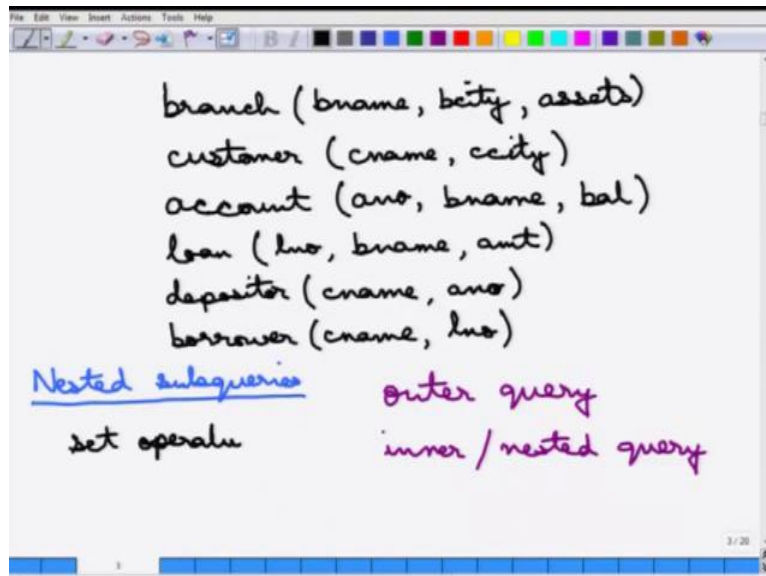 File Edit View Insert Actions Tools Help
B I
branch (bname, bcity, assets)
customer (cname, ccity)
account (ano, bname, bal)
loan (lno, bname, amt)
depositor (cname, ano)
borrower (cname, lno)
Nested subqueries
outer query
set operatu
inner / nested query
3 / 20
3